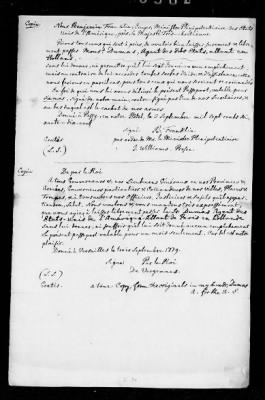 Copie
Nous Benjamin Franklin, Ecuyer, Ministre Plénipotentiaire des Etats
Unis de l'Amérique, près la Majesté Très-Chrétienne
Prions tous ceux qui sont à prier, de vouloir bien laisser surement et libre-
ment passer Monsr. Dumas, Agent des dits Etats, allant en
Hollande
sans lui donner, ni permettre qu'il lui soit donné aucun empêchement
mais au contraire de lui accorder toutes sortes d'aide et d'assistance, comme
nous ferions en pareil cas, pour tous ceux qui nous seroient recommandés
En foi de quoi nous lui avons délivré le présent Passeport, valable pour
signé de notre main, et contresigné par l'un de nos Secrétaires, et
au bas duquel est le cachet de nos armes
Donné à Passy, en notre Hôtel, le 2 Septembre mil sept cents
Signé B. Franklin
Contés par ordre de M. le Ministre Plénipotentiaire
(L.S.) J. Williams, Secre.
Copie
De par le Roi
A tous Gouverneurs et nos Lieutenans Généraux en nos Provinces &
Armées, Gouverneurs particuliers & Commandans de nos Villes, Places &
Troupes, et à tous autres nos Officiers, Justiciers et Sujets qu'il appar-
tiendra, Salut. Nous voulons et vous mandons très expressément
que vous ayiez à laisser librement passer le Sr. Dumas Agent des
Etats-Unis de l'Amérique, allant de Paris en Hollande
Sans lui donner, ni souffrir qu'il lui soit donné aucun empêchement
Le présent passeport valable pour un mois seulement. Car tel est notre
plaisir.
Donné à Versailles le trois Septembre 1779.
Signé Par le Roi
(L.S.) De Vergennes
Contés. a true Copy from the originals in my hands, Dumas
A. for the U. S